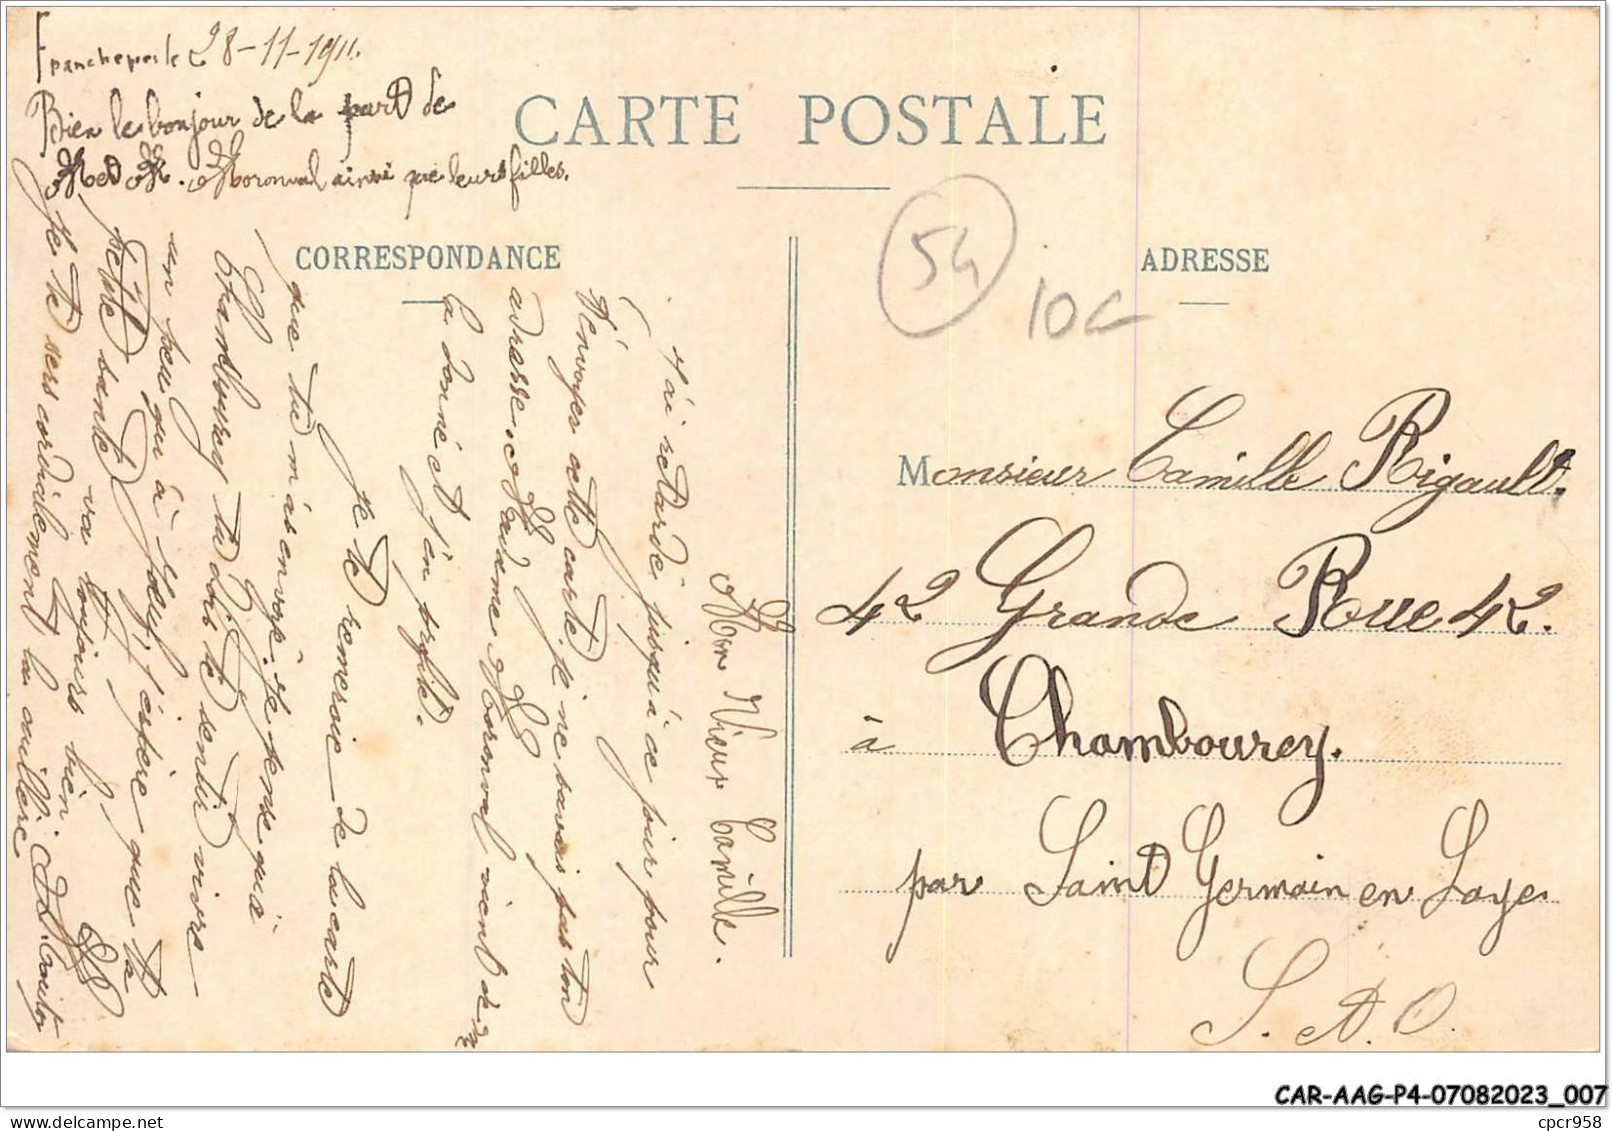 Francheperle 28-11-1911.
Bien le bonjour de la part de
M et M. Moronval ainsi que leurs filles.
CARTE POSTALE
CORRESPONDANCE
ADRESSE
54
10c
Mon Vieux Camille.
J'ai retardé jusqu'à ce jour pour
t'envoyer cette carte, je ne savais pas ton
adresse. Madame Moronval vient de me
la donné et j'en profite.
Je te remercie de la carte
que tu m'as envoyé. Je pense qu'à
Chambourcy tu dois te sentir vivre
un peu qu'à Joeuf, j'éspère que ta
petite santé va toujours bien.
Je te sers cordialement la cuillère
Monsieur Camille Rigault.
42 Grande Rue 42.
à Chambourcy.
par Saint Germain en Laye
S. et O.
CAR-AAG-P4-07082023_007
cpcr958